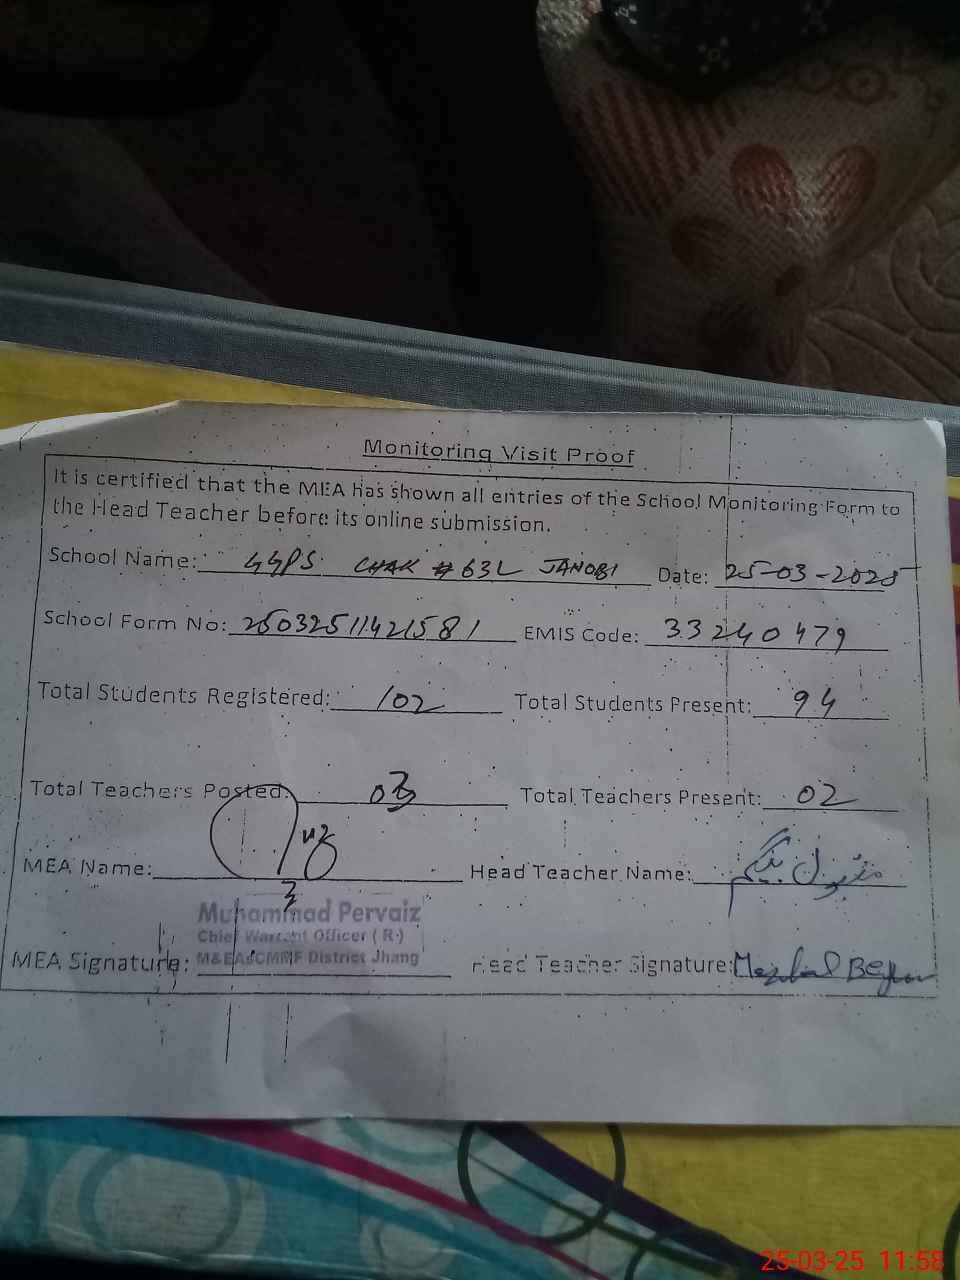 Monitoring Visit Proof
It is certified that the MEA has shown all entries of the School Monitoring Form to
the Head Teacher before its online submission.
School Name: GGPS CHAK # 63L JANOBI Date: 25-03-2025
School Form No: 25032511421581 EMIS Code: 33240479
Total Students Registered: 102 Total Students Present: 94
Total Teachers Posted: 03 Total Teachers Present: 02
MEA Name: Head Teacher Name: بیگم
Muhammad Pervaiz
Chief Warrant Officer (R)
M&EA&CMRIF District Jhang
MEA Signature: Head Teacher Signature: Begum
25-03-25 11:58